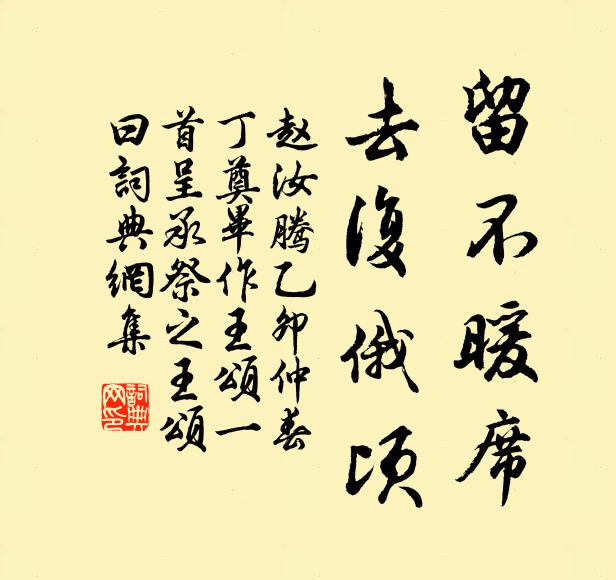 留不暖席
去復俄頃
赵汝騰乙卯仲春
丁奠畢作王頌一
首呈承祭之王頌
曰詞典網集
詞典
网印